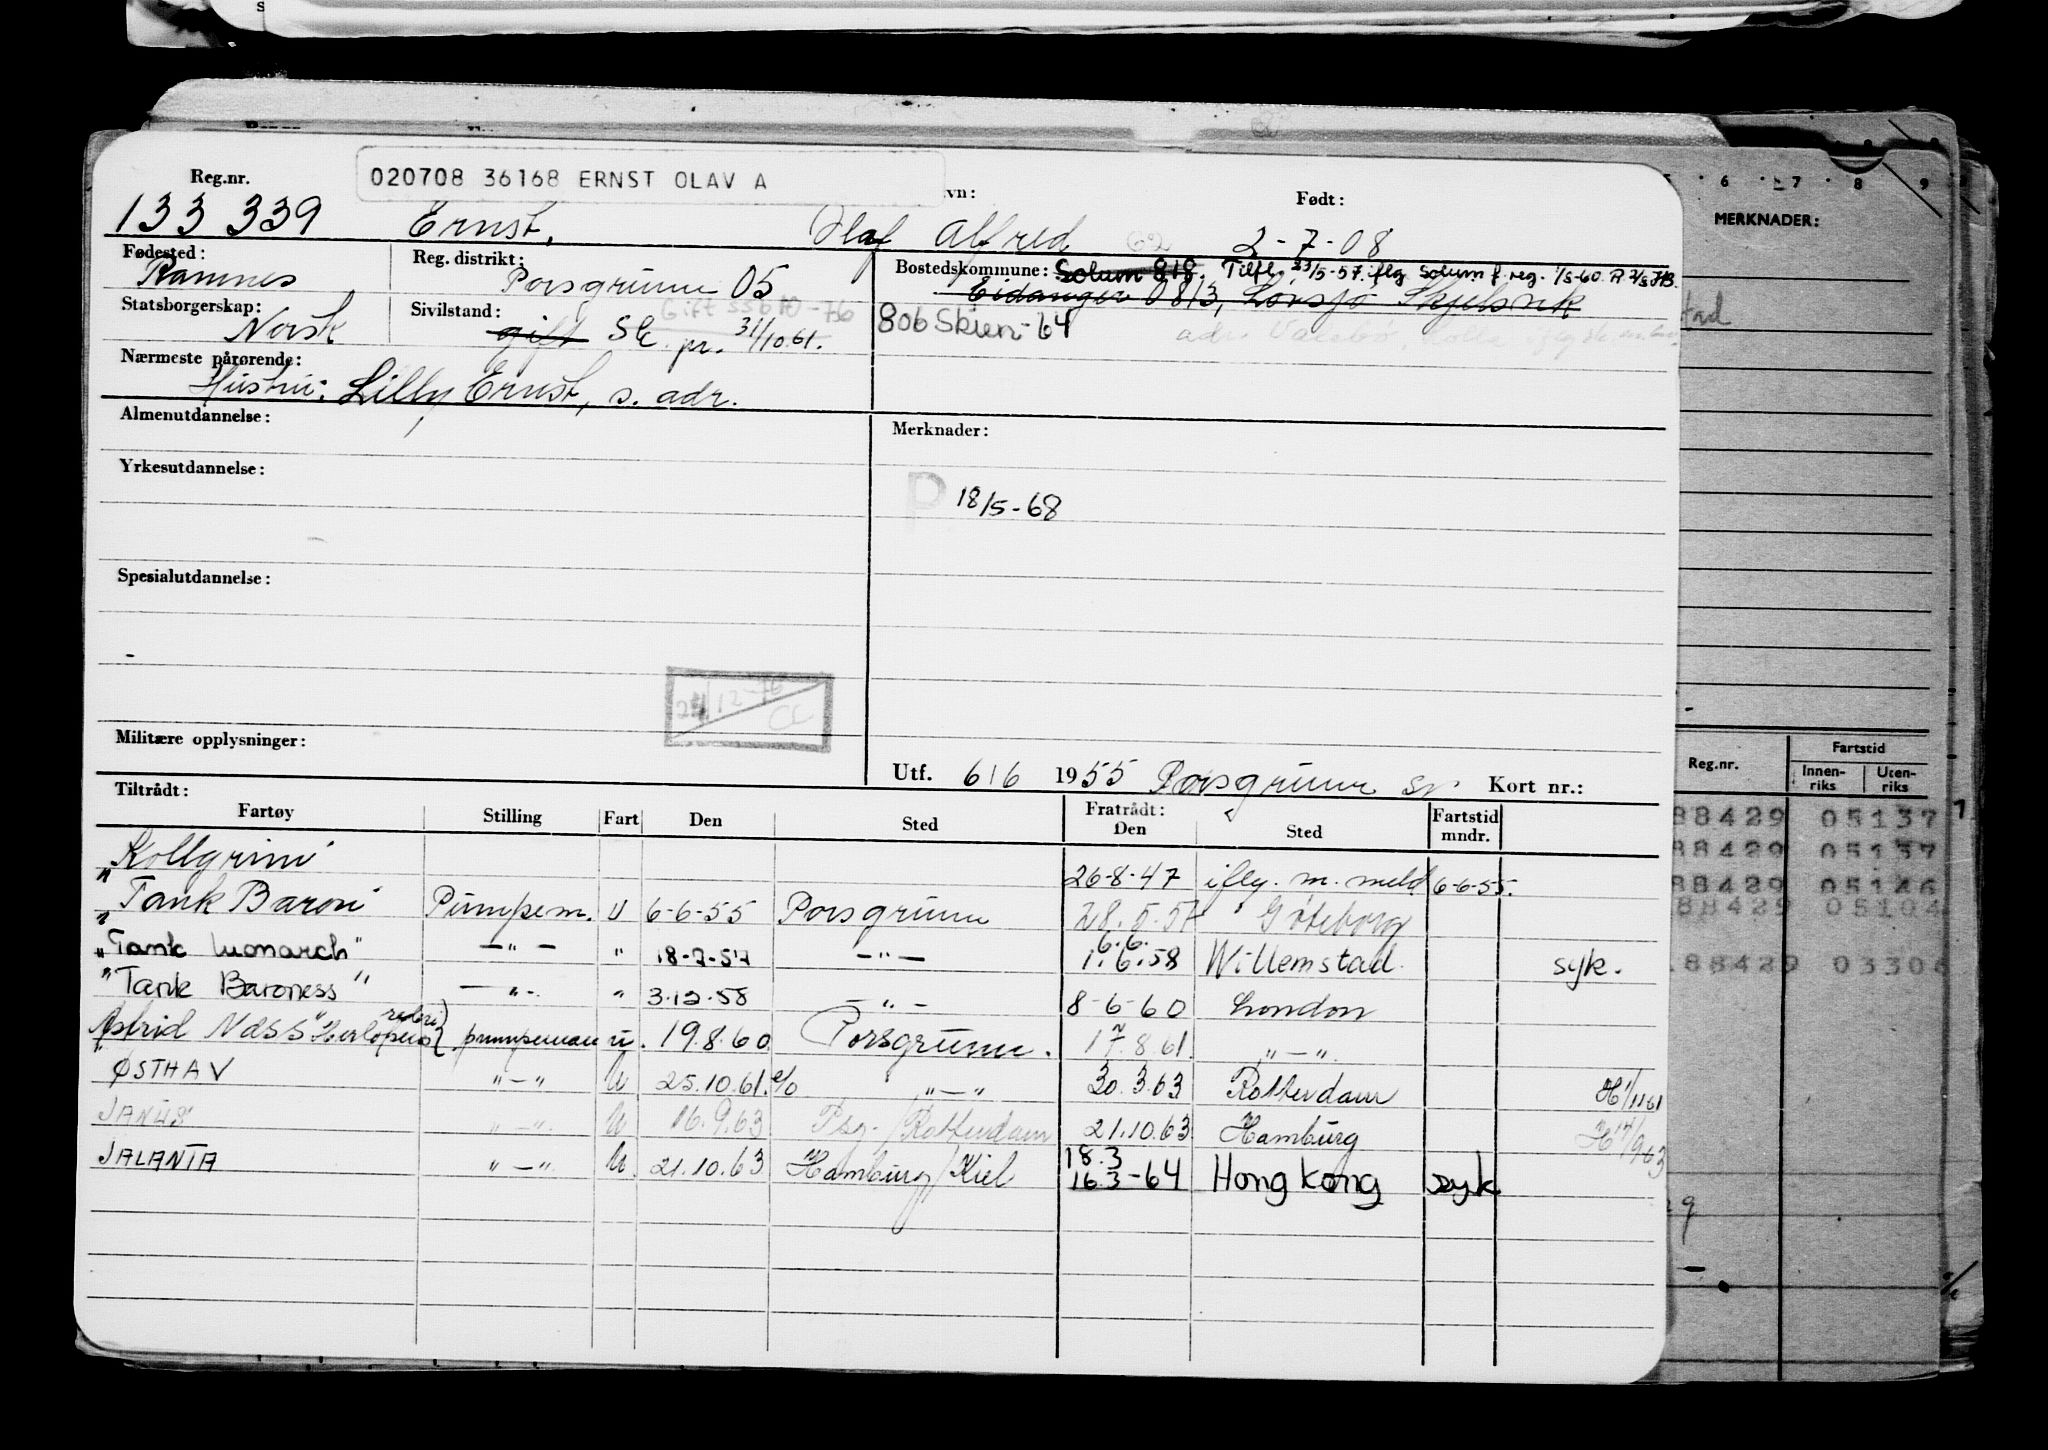 Reg.nr. 020708 36168 ERNST OLAV A vn: Født:
133 339 Ernst, Olaf Alfred 2-7-08
Fødested: Reg. distrikt: Bostedskommune: Solum 818. Tilfl. 23/5-57 iflg Solum f.reg. 1/5-60
Ramnes Porsgrunn 05 Eidanger 0813, Skjelsvik
Statsborgerskap: Sivilstand: 806 Skien-64
Norsk gift Se pr. 31/10.61.
Nærmeste pårørende:
Hustru: Lilly Ernst, s. adr.
Almenutdannelse: Merknader:
Yrkesutdannelse:
P 18/5-68
Spesialutdannelse:
Militære opplysninger:
Utf. 6/6 1955 Porsgrunn Kort nr.:
Tiltrådt: Fratrådt:
Fartøy Stilling Fart Den Sted Den Sted Fartstid mndr.
"Kollgrim" 26-8-47 iflg. m. meld 6-6-55.
"Tank Baron" Pumpem. U 6-6-55 Porsgrunn 28.5.57 Göteborg
"Tank Monarch" —"— " 18-7-57 —"— 6.6. 1.6.58 Willemstad syk.
"Tank Baroness" —"— " 3.12.58 —"— 8-6-60 London
Astrid Næss rederi) pumpeman u. 19.8.60 Porsgrunn. 17.8.61. "—".
ØSTHAV "—" U 25.10.61. "—" 30.3.63 Rotterdam H 1/11 61
JANUS "—" U 16.9.63 Psg./Rotterdam 21.10.63 Hamburg H 14/9 63
JALANTA "—" U 21.10.63 Hamburg/Kiel 18.3 16.3-64 Hong Kong syk
6 7 8 9
MERKNADER:
Reg.nr. Fartstid
Innen-riks Uten-riks
88429 05137
88429 05137
88429 05146
88429 05104
88429 0330